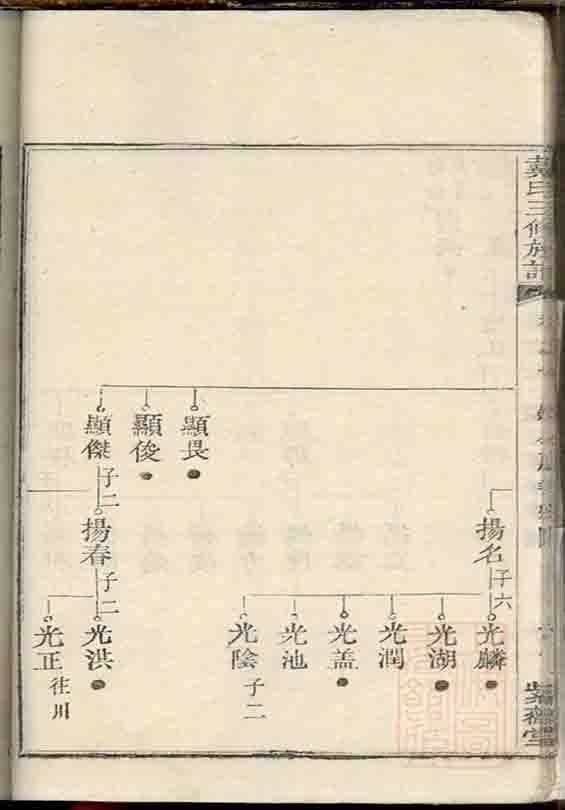 戴氏三修族譜
紫薇堂
顯畏
顯俊
顯傑
子二
揚名
子六
揚春
子二
光麟
光湖
光潤
光盖
光池
光陰
子二
光洪
光正
往川